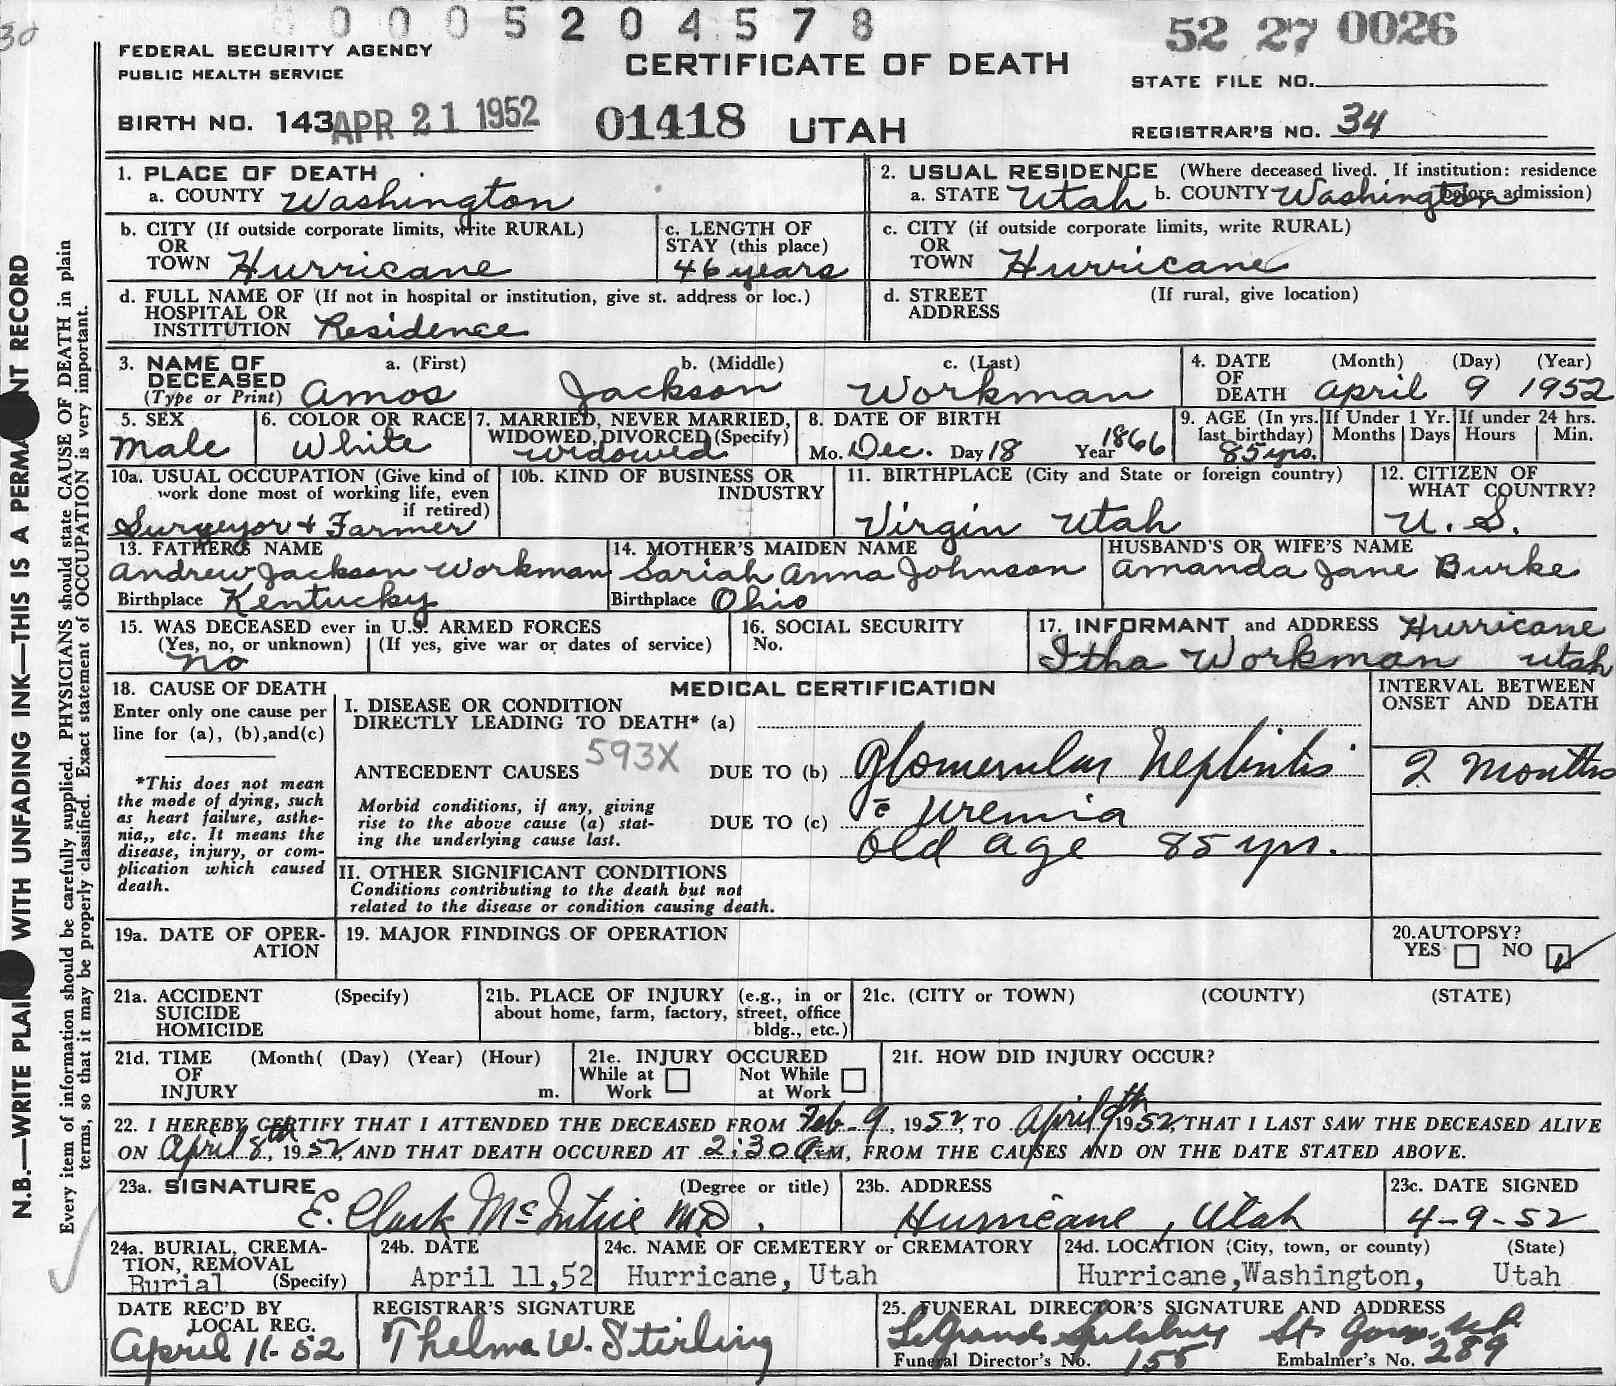 0005204578
52 27 0026
FEDERAL SECURITY AGENCY
PUBLIC HEALTH SERVICE
CERTIFICATE OF DEATH
STATE FILE NO.
BIRTH NO. 143 APR 21 1952 01418 UTAH
REGISTRAR'S NO. 34
1. PLACE OF DEATH
a. COUNTY Washington
2. USUAL RESIDENCE (Where deceased lived. If institution: residence before admission)
a. STATE Utah b. COUNTY Washington
b. CITY (If outside corporate limits, write RURAL)
OR
TOWN Hurricane
c. LENGTH OF
STAY (this place)
46 years
c. CITY (if outside corporate limits, write RURAL)
OR
TOWN Hurricane
d. FULL NAME OF (If not in hospital or institution, give st. address or loc.)
HOSPITAL OR
INSTITUTION Residence
d. STREET (If rural, give location)
ADDRESS
3. NAME OF a. (First) b. (Middle) c. (Last)
DECEASED
(Type or Print) Amos Jackson Workman
4. DATE (Month) (Day) (Year)
OF
DEATH April 9 1952
5. SEX
Male
6. COLOR OR RACE
White
7. MARRIED, NEVER MARRIED,
WIDOWED, DIVORCED (Specify)
Widowed
8. DATE OF BIRTH
Mo. Dec. Day 18 Year 1866
9. AGE (In yrs.
last birthday)
85 yrs.
If Under 1 Yr.
Months Days
If under 24 hrs.
Hours Min.
10a. USUAL OCCUPATION (Give kind of
work done most of working life, even
if retired)
Surveyor + Farmer
10b. KIND OF BUSINESS OR
INDUSTRY
11. BIRTHPLACE (City and State or foreign country)
Virgin Utah
12. CITIZEN OF
WHAT COUNTRY?
U. S.
13. FATHER'S NAME
Andrew Jackson Workman
Birthplace Kentucky
14. MOTHER'S MAIDEN NAME
Sariah Anna Johnson
Birthplace Ohio
HUSBAND'S OR WIFE'S NAME
Amanda Jane Burke
15. WAS DECEASED ever in U.S. ARMED FORCES
(Yes, no, or unknown) (If yes, give war or dates of service)
no
16. SOCIAL SECURITY
No.
17. INFORMANT and ADDRESS Hurricane
Itha Workman Utah
18. CAUSE OF DEATH
Enter only one cause per
line for (a), (b),and(c)
*This does not mean
the mode of dying, such
as heart failure, asthe-
nia,, etc. It means the
disease, injury, or com-
plication which caused
death.
MEDICAL CERTIFICATION
I. DISEASE OR CONDITION
DIRECTLY LEADING TO DEATH* (a)
593X
ANTECEDENT CAUSES DUE TO (b) Glomerular Nephritis
Morbid conditions, if any, giving
rise to the above cause (a) stat-
ing the underlying cause last.
DUE TO (c) c̄ Uremia
Old age 85 yrs.
INTERVAL BETWEEN
ONSET AND DEATH
2 Months
II. OTHER SIGNIFICANT CONDITIONS
Conditions contributing to the death but not
related to the disease or condition causing death.
19a. DATE OF OPER-
ATION
19. MAJOR FINDINGS OF OPERATION
20.AUTOPSY?
YES NO ✓
21a. ACCIDENT (Specify)
SUICIDE
HOMICIDE
21b. PLACE OF INJURY (e.g., in or
about home, farm, factory, street, office
bldg., etc.)
21c. (CITY or TOWN) (COUNTY) (STATE)
21d. TIME (Month( (Day) (Year) (Hour)
OF
INJURY m.
21e. INJURY OCCURED
While at Work Not While at Work
21f. HOW DID INJURY OCCUR?
22. I HEREBY CERTIFY THAT I ATTENDED THE DECEASED FROM Feb-9, 1952, TO April 9th 1952, THAT I LAST SAW THE DECEASED ALIVE
ON April 8th, 1952, AND THAT DEATH OCCURED AT 2:30 A.M, FROM THE CAUSES AND ON THE DATE STATED ABOVE.
23a. SIGNATURE (Degree or title)
E. Clark McIntire MD.
23b. ADDRESS
Hurricane, Utah
23c. DATE SIGNED
4-9-52
24a. BURIAL, CREMA-
TION, REMOVAL
Burial (Specify)
24b. DATE
April 11,52
24c. NAME OF CEMETERY or CREMATORY
Hurricane, Utah
24d. LOCATION (City, town, or county) (State)
Hurricane,Washington, Utah
DATE REC'D BY
LOCAL REG.
April 11-52
REGISTRAR'S SIGNATURE
Thelma W. Stirling
25. FUNERAL DIRECTOR'S SIGNATURE AND ADDRESS
LeGrande Spilsbury St.
Funeral Director's No. 155 Embalmer's No. 289
N.B.—WRITE WITH UNFADING INK—THIS IS A RECORD
Every item of information should be carefully supplied. PHYSICIANS should state CAUSE OF DEATH in plain
terms, so that it may be properly classified. Exact statement of OCCUPATION is very important.